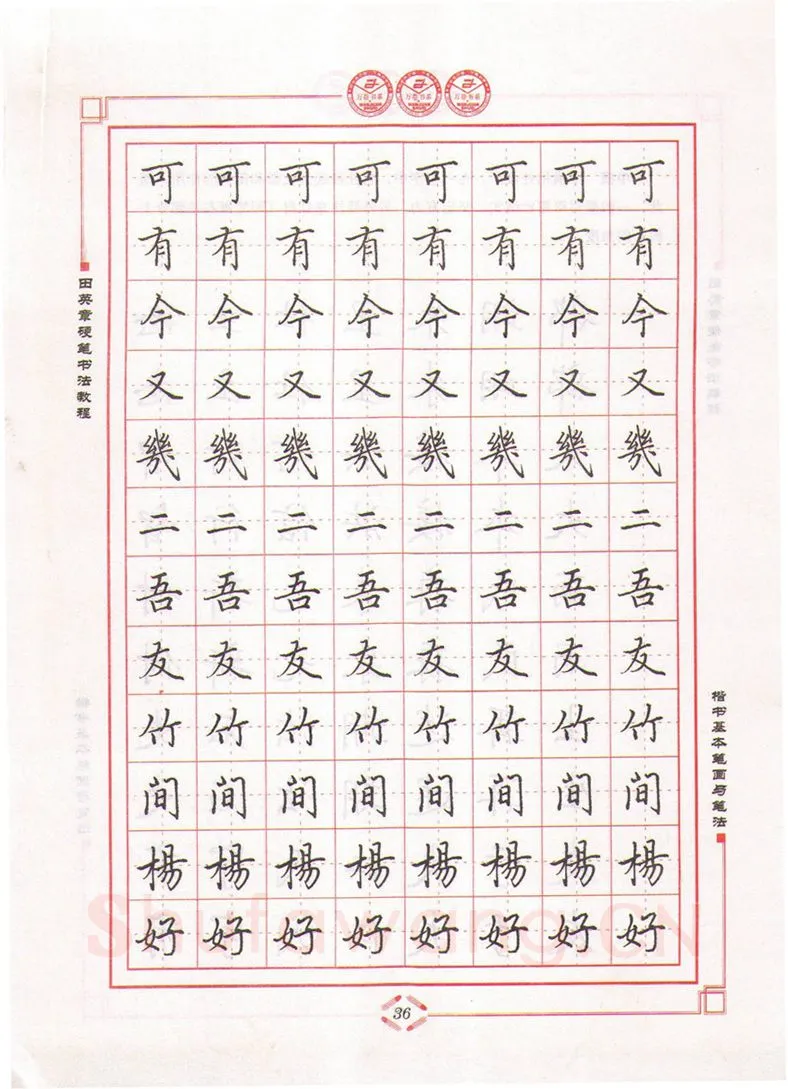 田英章硬笔书法教程
可 可 可 可 可 可 可 可
有 有 有 有 有 有 有 有
今 今 今 今 今 今 今 今
又 又 又 又 又 又 又 又
幾 幾 幾 幾 幾 幾 幾 幾
二 二 二 二 二 二 二 二
吾 吾 吾 吾 吾 吾 吾 吾
友 友 友 友 友 友 友 友
竹 竹 竹 竹 竹 竹 竹 竹
间 间 间 间 间 间 间 间
楊 楊 楊 楊 楊 楊 楊 楊
好 好 好 好 好 好 好 好
楷书基本笔画与笔法
Shufawang.CN
36